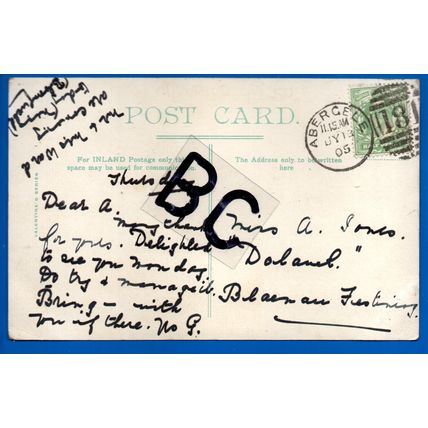 POST CARD.
For INLAND Postage only this
space may be used for communication.
The Address only to be written
here
VALENTINE'S SERIES
ABERGELE
11.15 AM
JY 13
05
181
BC
Thursday
Dear A.
Many thanks
for yours. Delighted
to see you Monday.
Do try & manage it.
Bring - with
you if there. No G.
Miss A. Jones.
"Dolawel."
Blaenau Festiniog
this Week